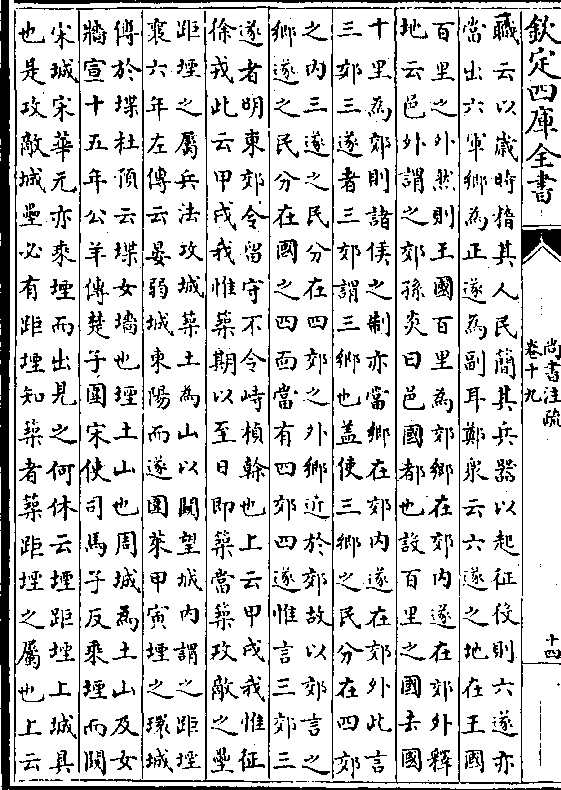 欽定四庫全書
尚書注疏
卷十九
十四
職云以歲時稽其人民簡其兵器以起征役則六遂亦
當出六軍鄉為正遂為副耳鄭衆云六遂之地在王國
百里之外然則王國百里為郊鄉在郊内遂在郊外釋
地云邑外謂之郊孫炎曰邑國都也設百里之國去國
十里為郊則諸侯之制亦當鄉在郊内遂在郊外此言
三郊三遂者三郊謂三鄉也蓋使三鄉之民分在四郊
之内三遂之民分在四郊之外鄉近於郊故以郊言之
鄉遂之民分在國之四面當有四郊四遂惟言三郊三
遂者明東郊令留守不令峙楨榦也上云甲戌我惟征
徐戎此云甲戌我惟築期以至日即築當築攻敵之壘
距堙之屬兵法攻城築土為山以闚望城内謂之距堙
襄六年左傳云晏弱城東陽而遂圍萊甲寅堙之環城
傅於堞杜預云堞女墻也堙土山也周城為土山及女
牆宣十五年公羊傳楚子圍宋使司馬子反乘堙而闚
宋城宋華元亦乘堙而出見之何休云堙距堙上城具
也是攻敵城壘必有距堙知築者築距堙之屬也上云